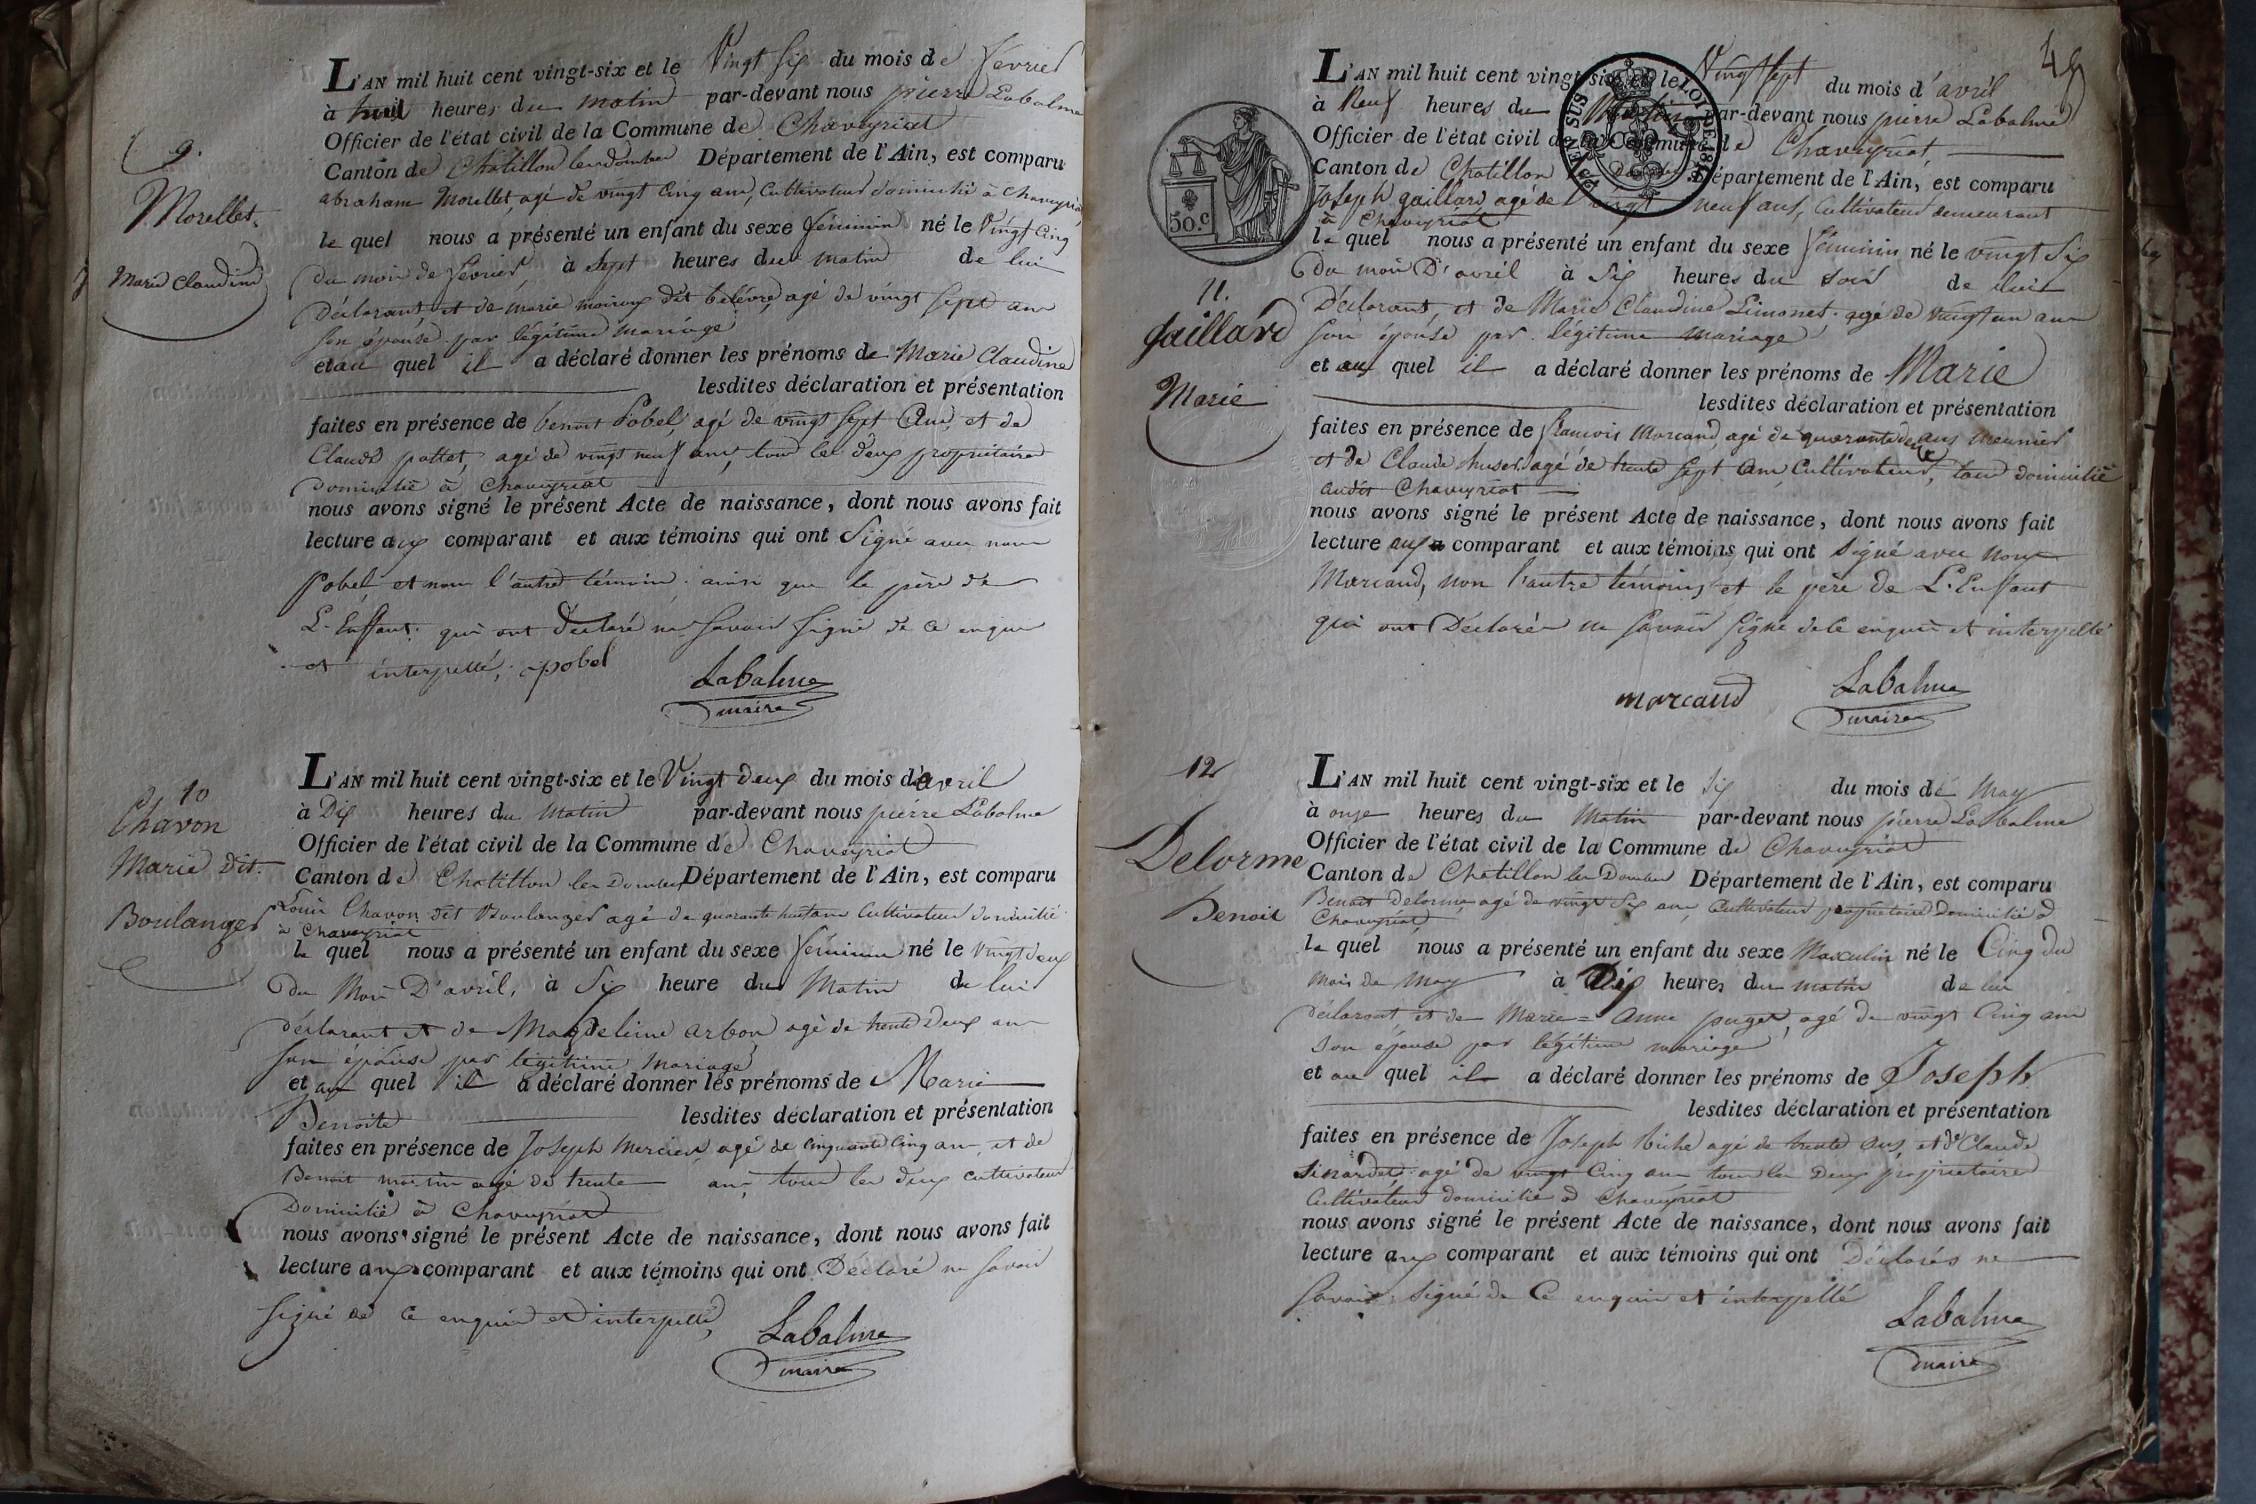 L'AN mil huit cent vingt-six et le Vingt Six du mois de février
à huit heures du matin par-devant nous pierre Labalme
Officier de l'état civil de la Commune de Chaveyriat
Canton de Châtillon les dombes Département de l'Ain, est comparu
abraham Morellet, agé de vingt cinq ans, cultivateur domicilié à Chaveyriat
le quel nous a présenté un enfant du sexe féminin né le Vingt Cinq
du mois de février à sept heures du matin de lui
Déclarant, et de marie dit agé de vingt sept ans
son épouse par légitime mariage
et au quel il a déclaré donner les prénoms de Marie Claudine
lesdites déclaration et présentation
faites en présence de benoit Pobel, agé de vingt sept ans, et de
Claude pottet, agé de vingt neuf ans, tous les deux propriétaires
domicilié à Chaveyriat
nous avons signé le présent Acte de naissance, dont nous avons fait
lecture aux comparant et aux témoins qui ont Signé avec nous
pobel, et non l'autre témoin, ainsi que le père de
L'Enffant, qui ont déclaré ne savoir signé de ce enquis
et interpellé, pobel
Labalme
maire
9.
Morellet
Marie Claudine
L'AN mil huit cent vingt-six et le Vingt deux du mois d'avril
à Dix heures du matin par-devant nous pierre Labalme
Officier de l'état civil de la Commune de Chaveyriat
Canton de Chatillon les Dombes Département de l'Ain, est comparu
Louis Chavon dit Boulanger agé de quarante huit ans Cultivateur domicilié
à Chaveyriat
le quel nous a présenté un enfant du sexe féminin né le vingt deux
du Mois D'avril, à Six heure du Matin de lui
déclarant et de Magdeleine arbon agé de trente Deux ans
son épouse par légitime mariage
et au quel il a déclaré donner les prénoms de Marie
Benoite lesdites déclaration et présentation
faites en présence de Joseph Mercier, agé de cinquante Cinq ans, et de
Benoit morin agé de trente ans, tous les deux cultivateur
Domicilié à Chaveyriat
nous avons signé le présent Acte de naissance, dont nous avons fait
lecture aux comparant et aux témoins qui ont Déclaré ne savoir
signé de ce enquis et interpellé,
Labalme
maire
10
Chavon
Marie dit
Boulanger
48
L'AN mil huit cent vingt-six et le Vingt Sept du mois d'avril
à Neuf heures du Matin par-devant nous pierre Labalme
Officier de l'état civil de la Commune de Chaveyriat,
Canton de Chatillon Département de l'Ain, est comparu
Joseph gaillard, agé de vingt neuf ans, Cultivateur demeurant
à Chaveyriat
le quel nous a présenté un enfant du sexe féminin né le vingt Six
du mois D'avril à Six heures du soir de lui
Déclarant, et de Marie Claudine Limonet agé de vingt un ans
son épouse par légitime mariage
et au quel il a déclaré donner les prénoms de Marie
lesdites déclaration et présentation
faites en présence de francois Morcaud, agé de quarante deux ans meunier
et de Claude agé de trente sept ans, Cultivateur, tous domicilié
audit Chaveyriat
nous avons signé le présent Acte de naissance, dont nous avons fait
lecture aux comparant et aux témoins qui ont signé avec Nous
Morcaud, non l'autre témoins et le père de L'Enffant
qui ont Déclarés ne savoir signé de ce enquis et interpellé
morcaud
Labalme
maire
50.c
EN SUS LOI DE 1816
11.
gaillard
Marie
L'AN mil huit cent vingt-six et le Six du mois de May
à onze heures du Matin par-devant nous pierre Labalme
Officier de l'état civil de la Commune de Chaveyriat
Canton de Chatillon les Dombes Département de l'Ain, est comparu
Benoit Delorme, agé de vingt Six ans, Cultivateur propriétaire Domicilié à
Chaveyriat
le quel nous a présenté un enfant du sexe Masculin né le Cinq du
mois de May à Dix heures du matin de lui
déclarant et de Marie = Anne puget, agé de vingt Cinq ans
son épouse par légitime mariage
et au quel il a déclaré donner les prénoms de Joseph
lesdites déclaration et présentation
faites en présence de Joseph agé de trente ans, et de Claude
agé de vingt Cinq ans tous les Deux propriétaires
Cultivateur domicilié à Chaveyriat
nous avons signé le présent Acte de naissance, dont nous avons fait
lecture aux comparant et aux témoins qui ont Déclarés ne
savoir signé de Ce enquis et interpellé
Labalme
maire
12
Delorme
Benoit